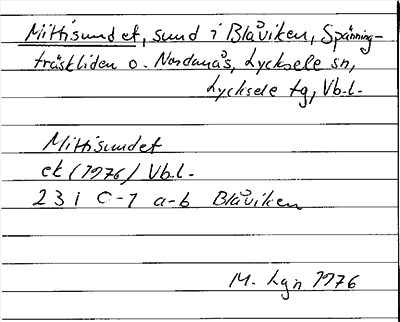 Mittisundet, sund i Blåviken, Spänning-
träskliden o. Nordanås, Lycksele sn,
Lycksele tg, Vb.l.
Mittisundet
ek (1976) Vb.l.
23 I 0-1 a-b Blåviken
M. Lgn 1976